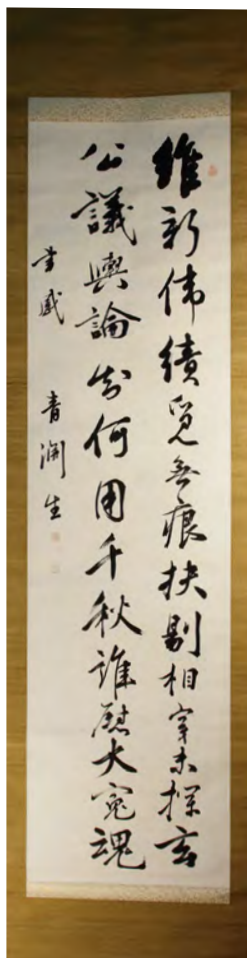 維新偉績覓無痕抉剔相穿未探玄
公議輿論知何用千秋誰慰大冤魂
書感 青淵生